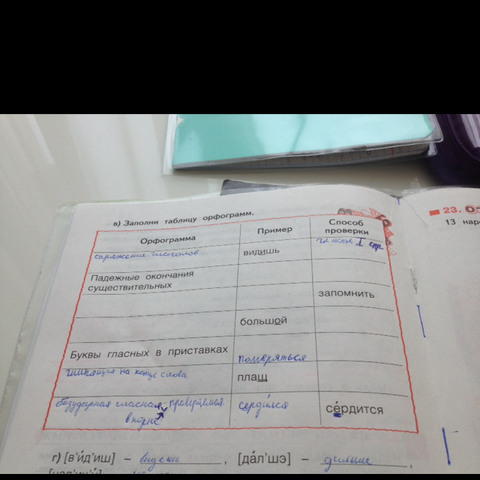 в) Заполни таблицу орфограмм.
Орфограмма Пример Способ проверки
спряжение глаголов видишь глагол I спр.
Падежные окончания
существительных
запомнить
большой
Буквы гласных в приставках потеряться
шипящая на конце слова плащ
безударная гласная, проверяемая сердился сердится
в корне
г) [в'ид'иш] – видешь , [дал'шэ] – дальше ,
23.
13